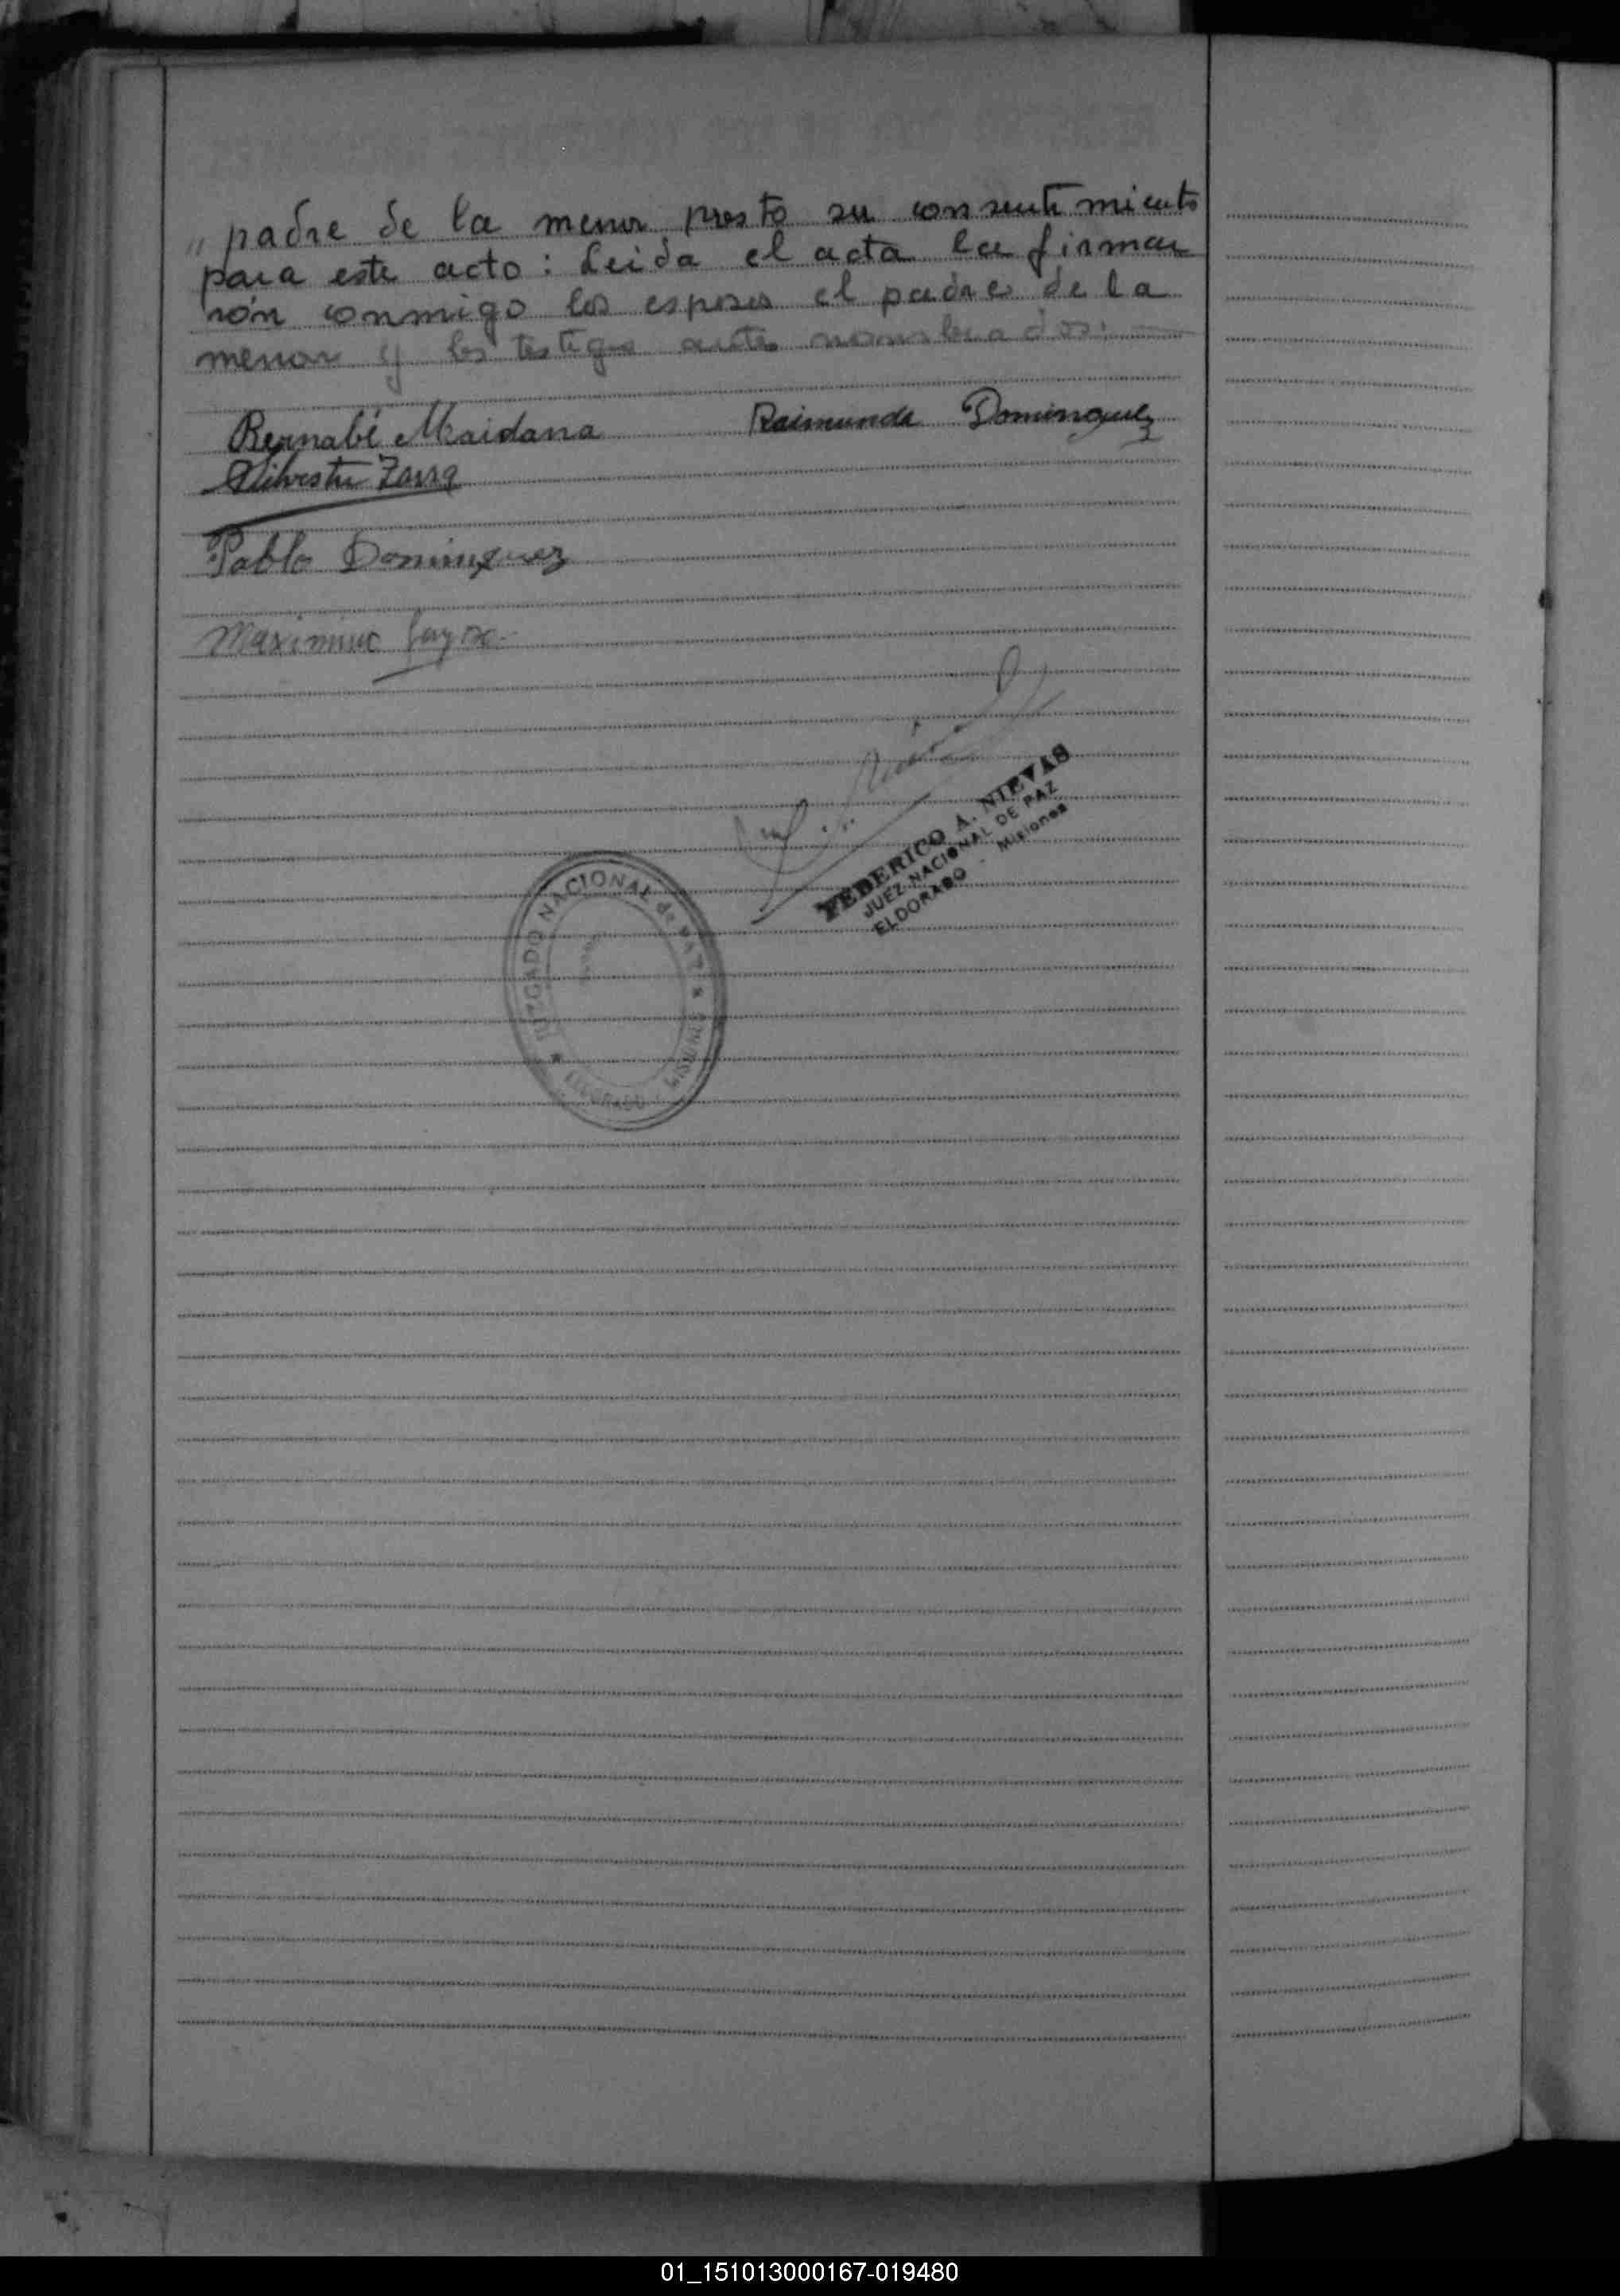 " padre de la menor presto su consentimiento
para este acto: Leida el acta la firma
rón conmigo los esposos el padre de la
menor y los testigos antes nombrados:
Bernabé Maidana Raimunda Dominguez
Silvestre
Pablo Dominguez
Maximino
FEDERICO A. NIEVAS
JUEZ NACIONAL DE PAZ
ELDORADO - Misiones
JUZGADO NACIONAL de PAZ
ELDORADO - MISIONES
01_151013000167-019480